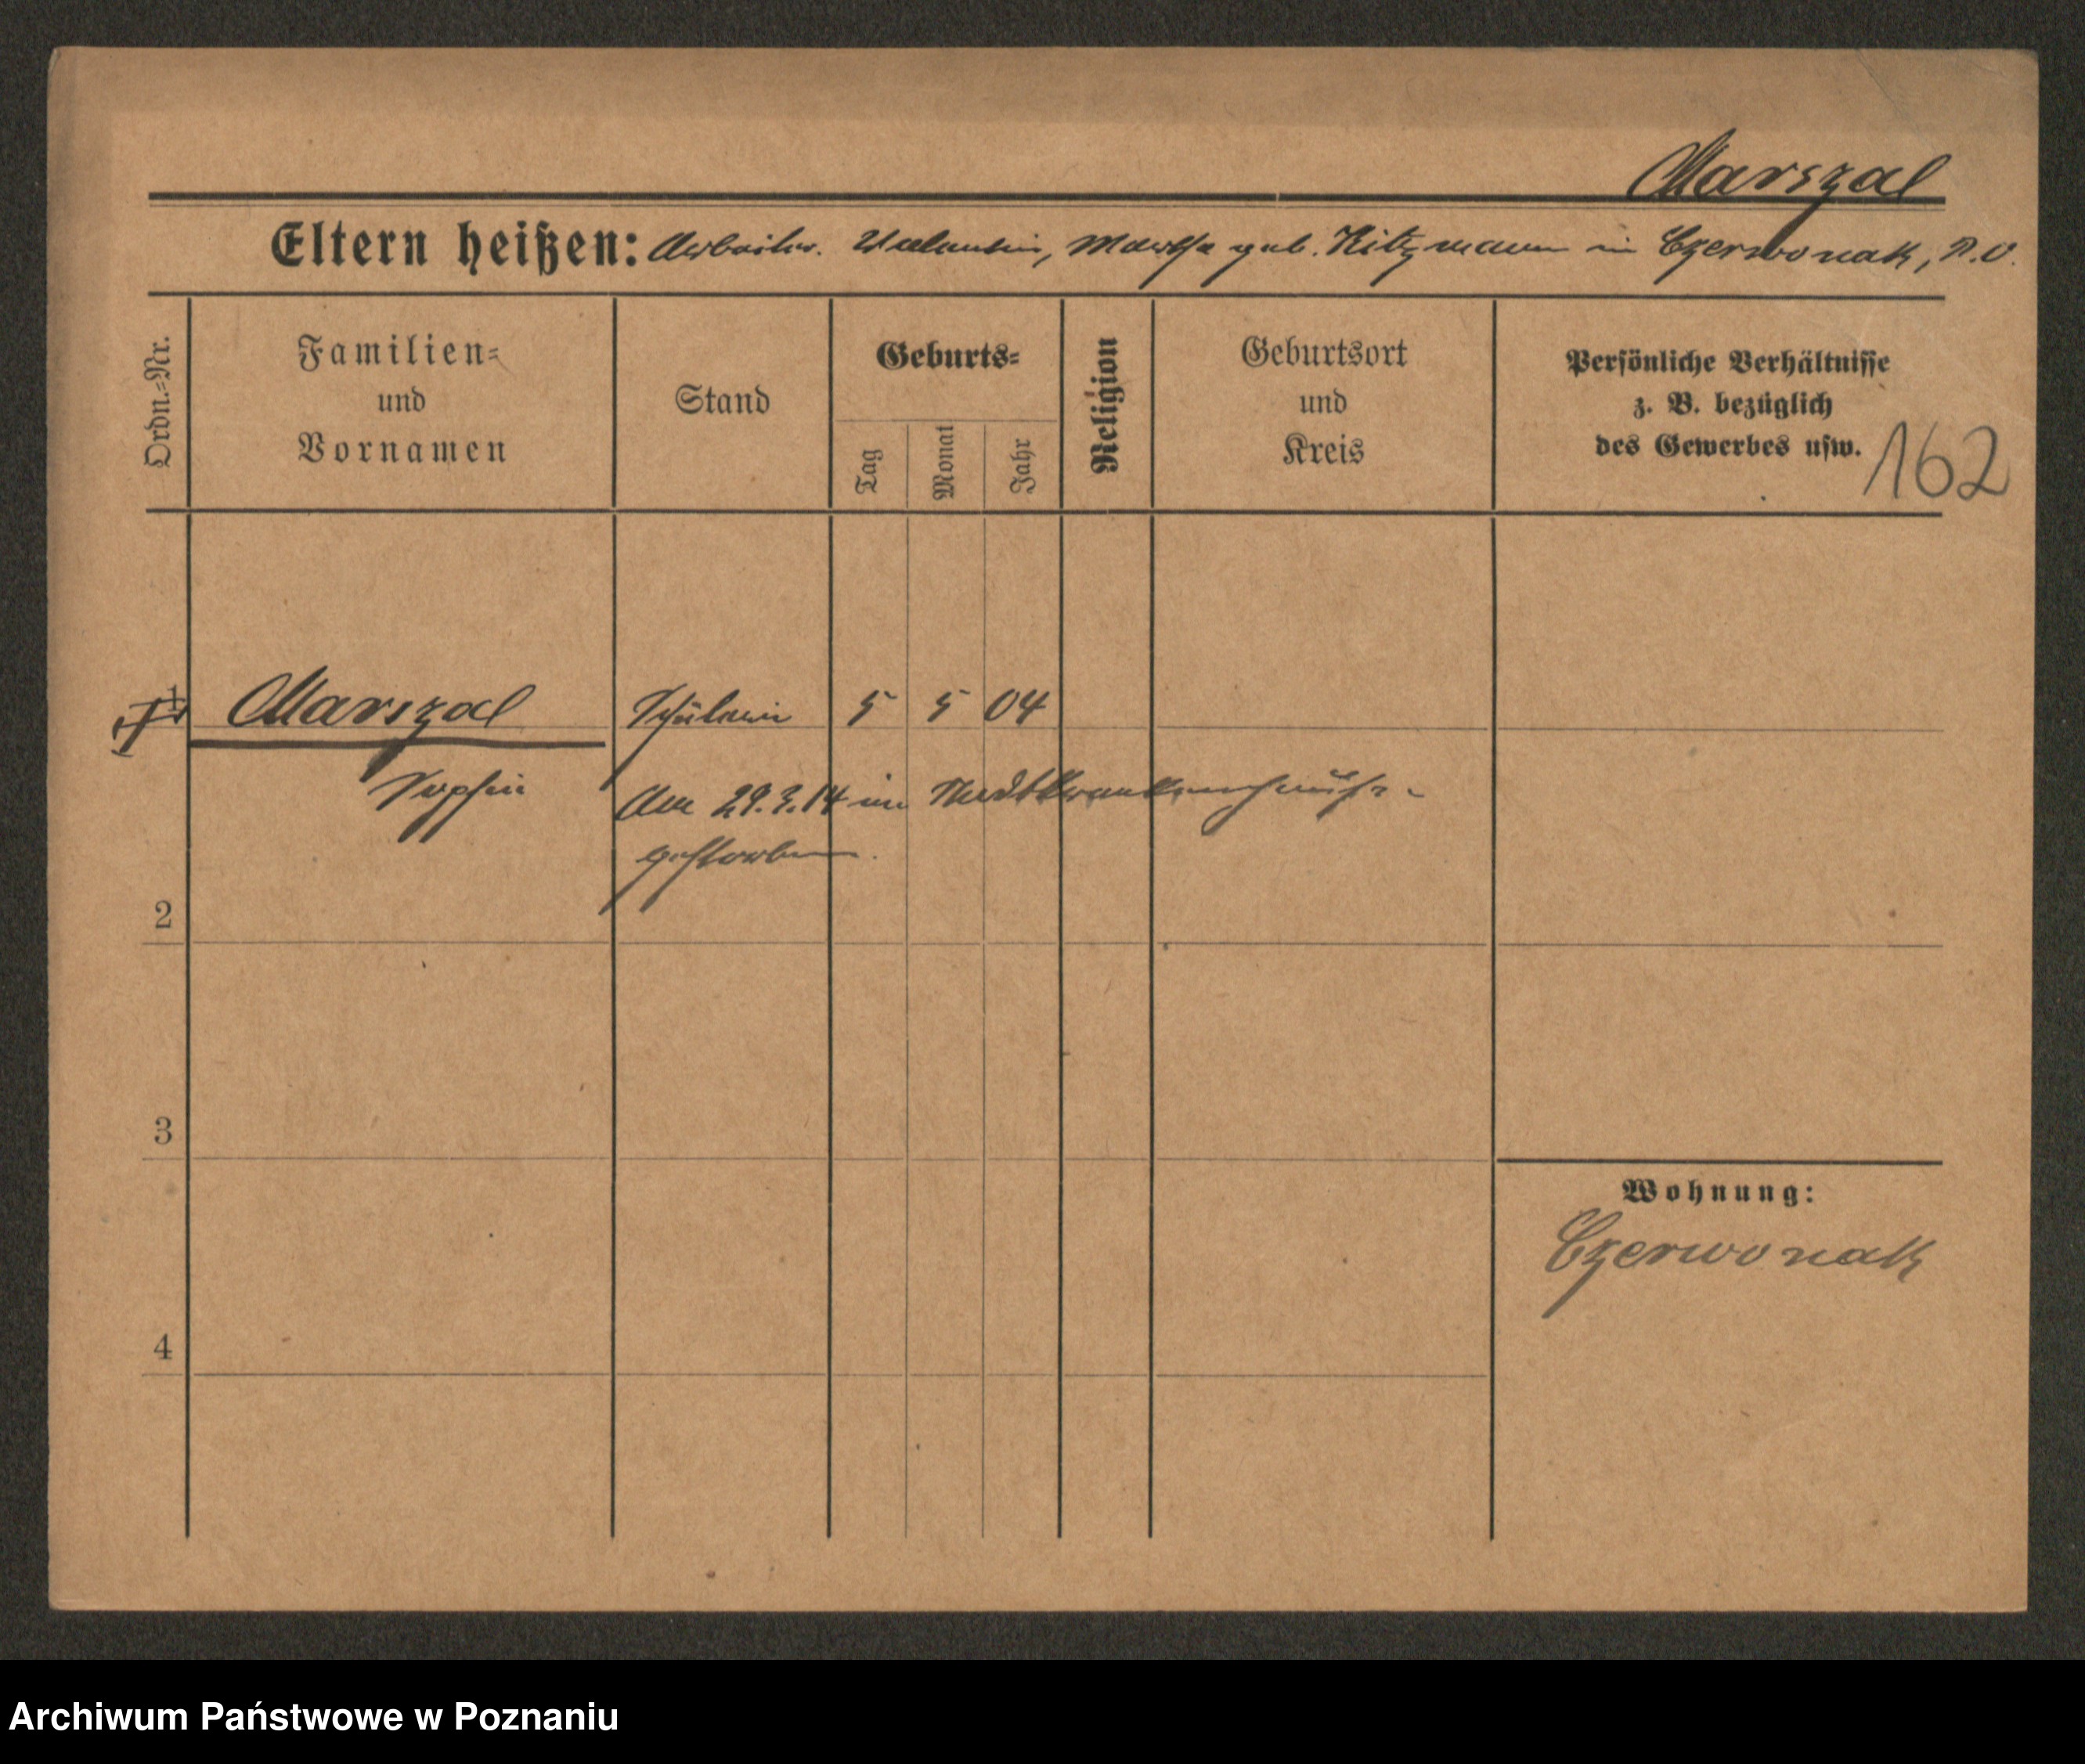 Marszal
Eltern heißen: Arbeiter Valentin, Martha geb. Kitzmann in Czerwonak, P.O.
Ordn.-Nr.
Familien-
und
Vornamen
Stand
Geburts-
Tag
Monat
Jahr
Religion
Geburtsort
und
Kreis
Persönliche Verhältnisse
z. B. bezüglich
des Gewerbes usw.
162
1 Marszal Schülerin 5 5 04
Sophie Am 29.3.14 im Stadtkrankenhause
gestorben.
2
3
Wohnung:
Czerwonak
4
Archiwum Państwowe w Poznaniu